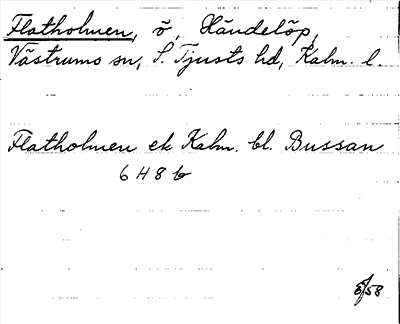 Flatholmen, ö, Händelöp,
Västrums sn, S. Tjusts hd, Kalm. l.
Flatholmen ek Kalm. bl. Bussan
6 H 8 b
/58